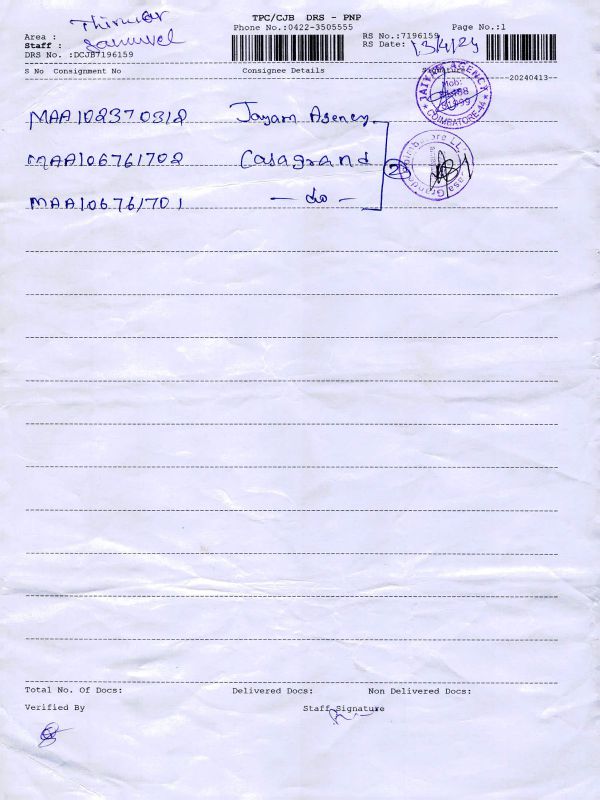 TPC/CJB DRS - PNP
Phone No.:0422-3505555
Page No.:1
Area :
Staff : Samuvel
DRS No. :DCJB7196159
RS No.:7196159
RS Date: 13/4/24
S No Consignment No Consignee Details
--20240413--
MAA102370318 Jayam Agency
MAA106761702 Casagrand
MAA106761701 - do -
2
AGENCY
Mob:
COIMBATORE-44
Total No. Of Docs: Delivered Docs: Non Delivered Docs:
Verified By Staff Signature